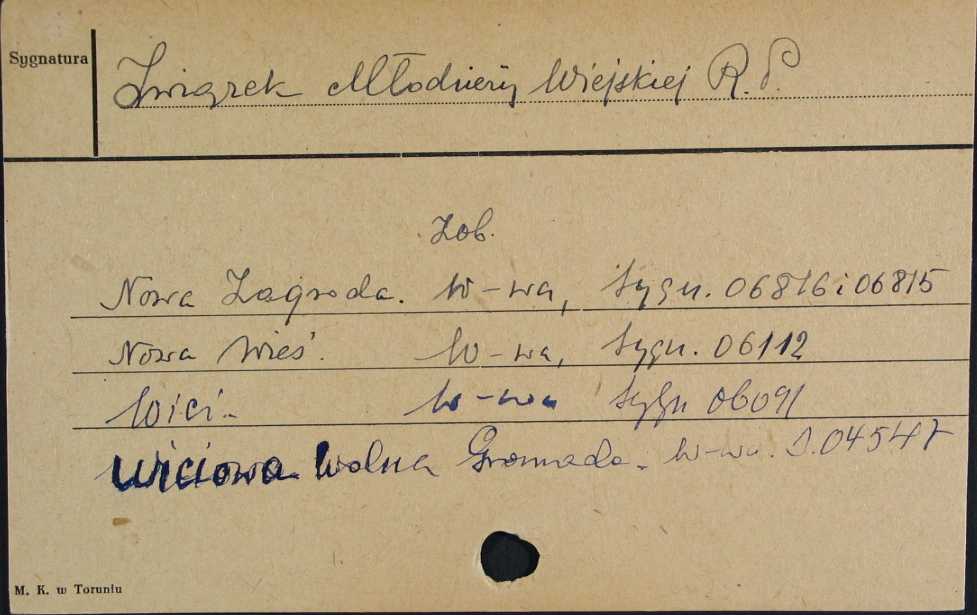 Sygnatura
Związek Młodzieży Wiejskiej R.P.
Zob.
Nowa Zagroda. W-wa, Sygn. 06816 i 06815
Nowa Wieś. W-wa, Sygn. 06112
Wici. W-wa Sygn 06091
Wiciowa Wolna Gromada. W-wa. S.04547
M. K. w Toruniu